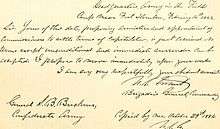 Head Quarters Army in the Field
Camp near Fort Donelson, February 16th
Sir: Yours of this date, proposing armistice and appointment of
Commissioners to settle terms of Capitulation, is just received. No
terms except unconditional and immediate surrender can be
accepted. I propose to move immediately upon your works.
I am Sir, very respectfully, your obedient servant
U.S. Grant
Brigadier General
General S. B. Buckner,
Confederate Army
Copied by